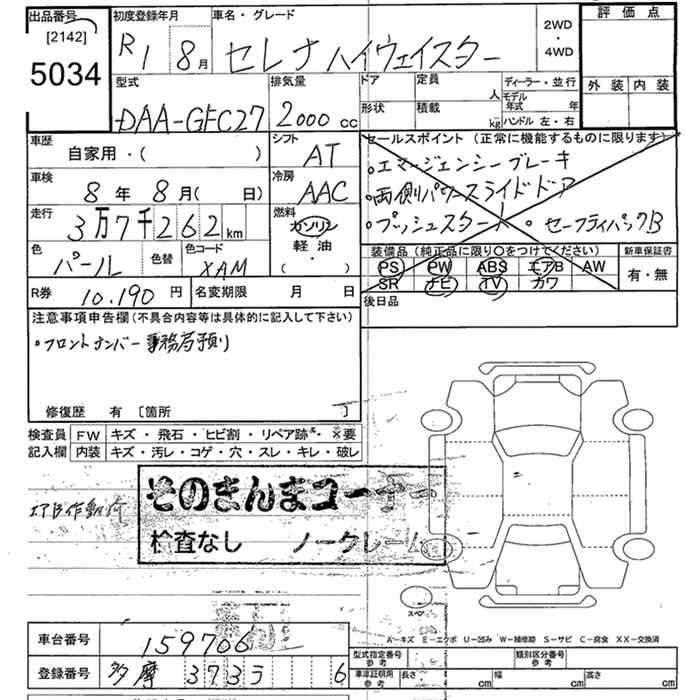 出品番号 初度登録年月 車名・グレード 2WD・4WD 評価点
[2142]
5034
R1 8月 セレナハイウェイスター
型式 排気量 ドア 定員 人 ディーラー・並行 外装 内装
DAA-GFC27 2000cc 形状 積載 kg モデル年式 年
ハンドル 左・右
車歴 シフト セールスポイント (正常に機能するものに限ります)
自家用・( ) AT ・エマージェンシーブレーキ
車検 冷房 ・両側パワースライドドア
8年 8月( 日) AAC ・プッシュスタート ・セーフティパックB
走行 燃料
3万7千262km ガソリン
軽油
( ・ )
色 色替 色コード 装備品 (純正品に限り○をつけてください) 新車保証書
パール XAM PS PW ABS エアB AW 有・無
SR ナビ TV カワ
R券 10,190円 名変期限 月 日 後日品
注意事項申告欄(不具合内容等は具体的に記入して下さい)
・フロントナンバー事務局預り
修復歴 有 〔箇所 〕
検査員 FW キズ・飛石・ヒビ割・リペア跡・×要
記入欄 内装 キズ・汚レ・コゲ・穴・スレ・キレ・破レ
そのまんまコーナー
検査なし ノークレーム
スペア
A-キズ E-エクボ U-凹み W-補修跡 S-サビ C-腐食 XX-交換済
車台番号 159706 型式指定番号 参考 類別区分番号 参考
登録番号 多摩 373 ら 6 車庫証明用 参考 長さ cm 幅 cm 高さ cm